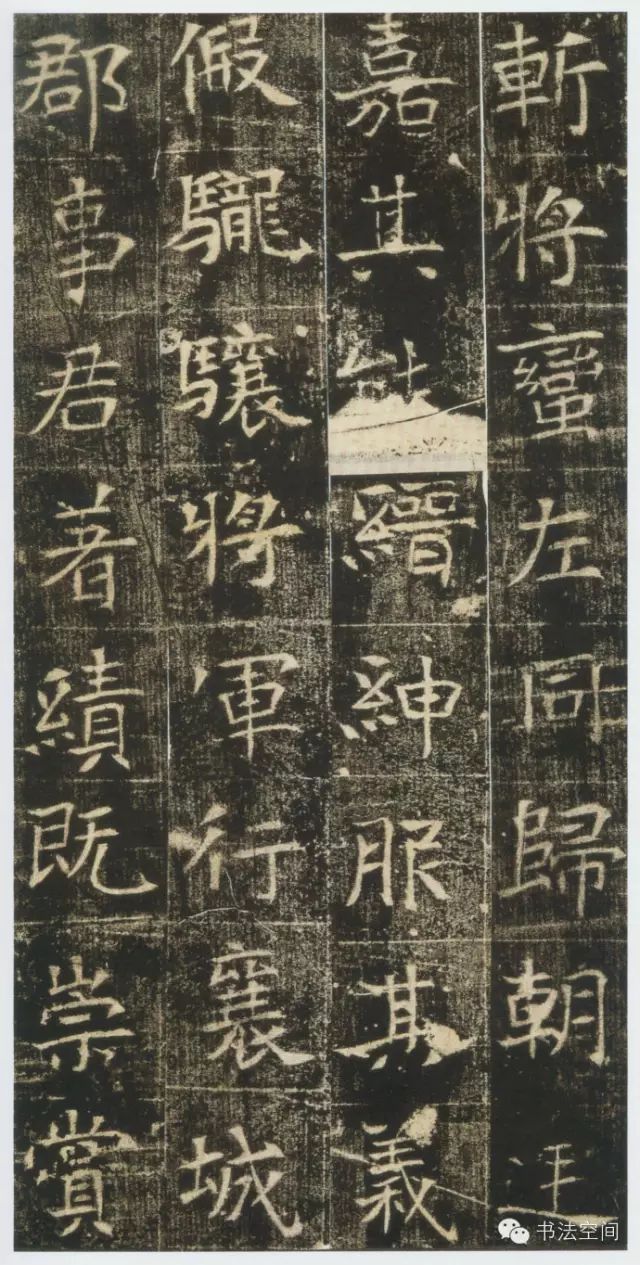 斬將蠻左同歸朝廷
嘉其能縉紳服其義
假䮾驤將軍行襄城
郡事君著績既崇賞
书法空间